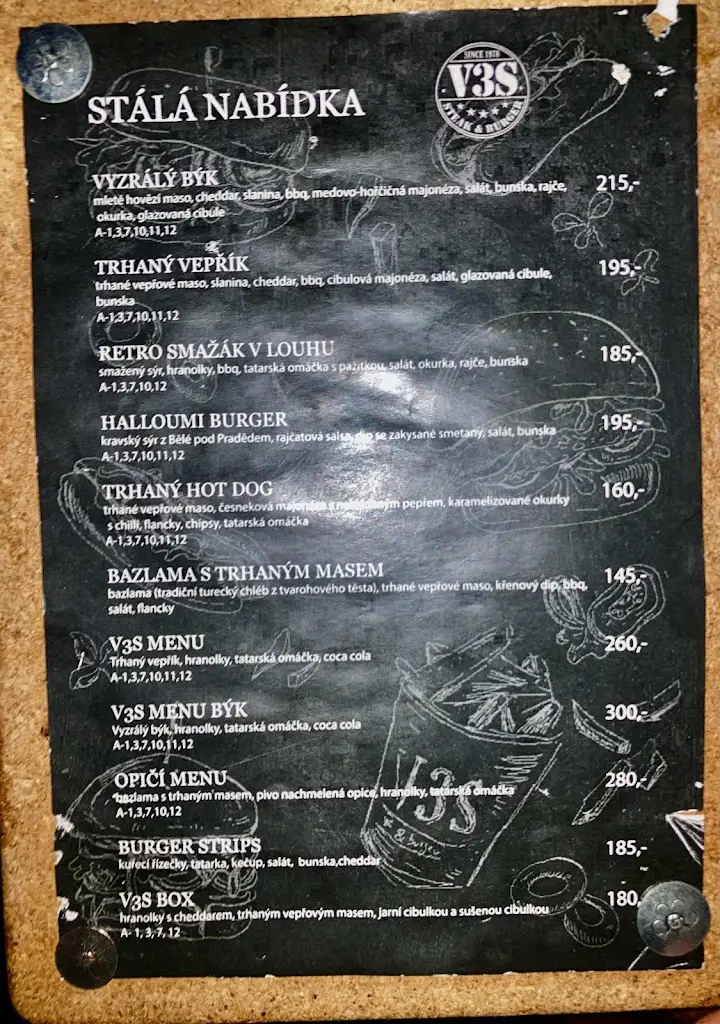 SINCE 1978
V3S
STEAK & BURGER
STÁLÁ NABÍDKA
VYZRÁLÝ BÝK 215,-
mleté hovězí maso, cheddar, slanina, bbq, medovo-hořčičná majonéza, salát, bunska, rajče,
okurka, glazovaná cibule
A-1,3,7,10,11,12
TRHANÝ VEPŘÍK 195,-
trhané vepřové maso, slanina, cheddar, bbq, cibulová majonéza, salát, glazovaná cibule,
bunska
A-1,3,7,10,11,12
RETRO SMAŽÁK V LOUHU 185,-
smažený sýr, hranolky, bbq, tatarská omáčka s pažitkou, salát, okurka, rajče, bunska
A-1,3,7,10,12
HALLOUMI BURGER 195,-
kravský sýr z Bělé pod Pradědem, rajčatová salsa, dip se zakysané smetany, salát, bunska
A-1,3,7,10,11,12
TRHANÝ HOT DOG 160,-
trhané vepřové maso, česneková majonéza s pepřem, karamelizované okurky
s chilli, flancky, chipsy, tatarská omáčka
A-1,3,7,10,11,12
BAZLAMA S TRHANÝM MASEM 145,-
bazlama (tradiční turecký chléb z tvarohového těsta), trhané vepřové maso, křenový dip, bbq,
salát, flancky
V3S MENU 260,-
Trhaný vepřík, hranolky, tatarská omáčka, coca cola
A-1,3,7,10,11,12
V3S MENU BÝK 300,-
Vyzrálý býk, hranolky, tatarská omáčka, coca cola
A-1,3,7,10,11,12
OPIČÍ MENU 280,-
bazlama s trhaným masem, pivo nachmelená opice, hranolky, tatarská omáčka
A-1,3,7,10,12
V3S
& burger
BURGER STRIPS 185,-
kuřecí řízečky, tatarka, kečup, salát, bunska,cheddar
V3S BOX 180,
hranolky s cheddarem, trhaným vepřovým masem, jarní cibulkou a sušenou cibulkou
A- 1, 3, 7, 12